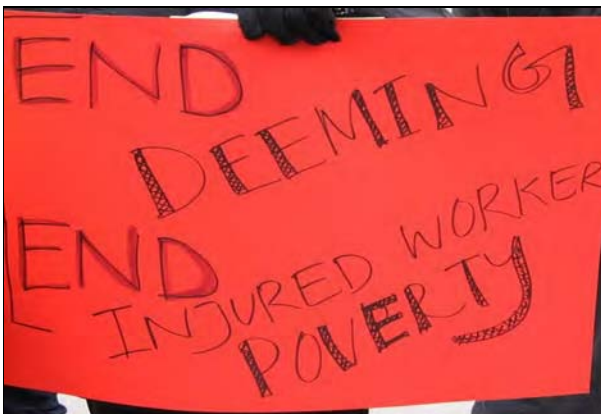 END
DEEMING
END
INJURED WORKER
POVERTY